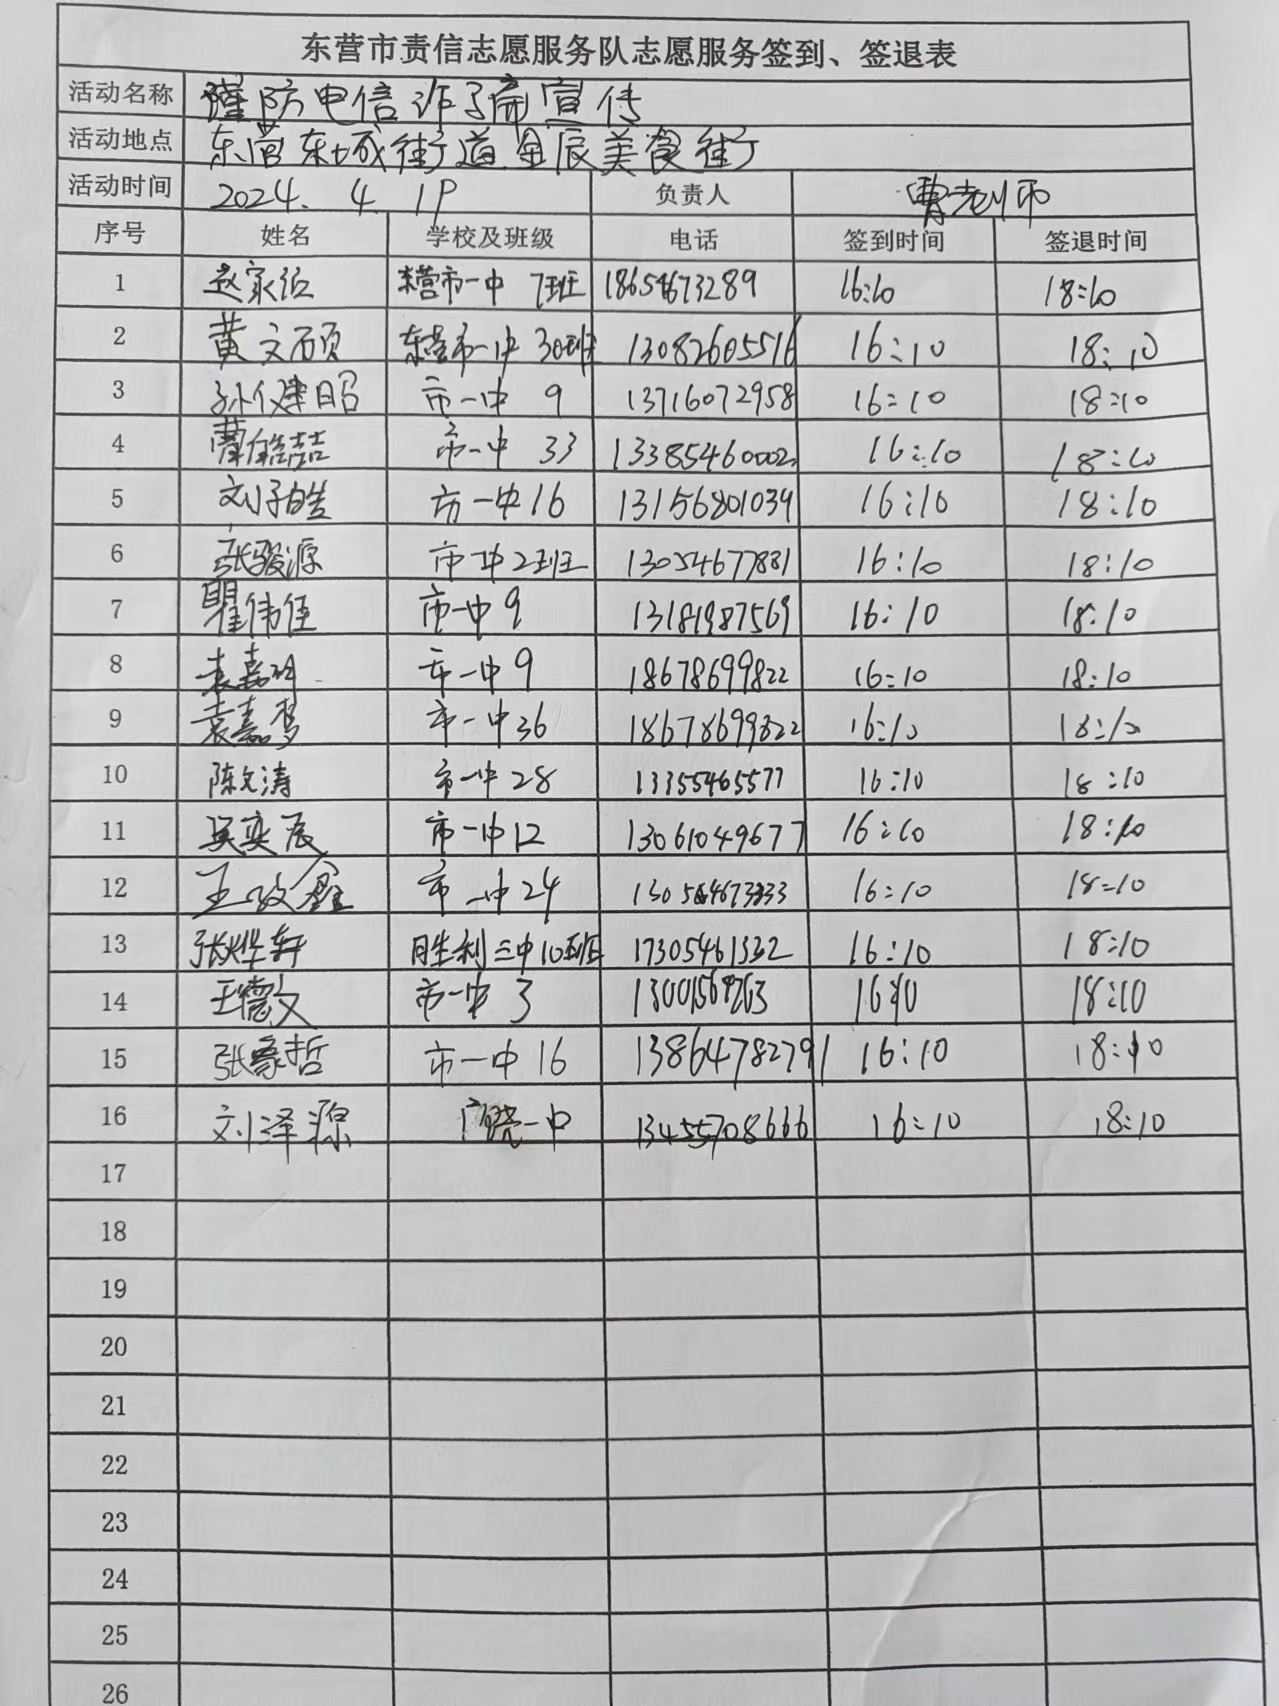 东营市责信志愿服务队志愿服务签到、签退表
活动名称 谨防电信诈骗宣传
活动地点 东营东城街道金辰美食街
活动时间 2024. 4. 19 负责人 曹老师
序号 姓名 学校及班级 电话 签到时间 签退时间
1 赵家 东营市一中 7班 18654673289 16:10 18:10
2 黄文硕 东营市一中 30班 13082605516 16:10 18:10
3 孙健昭 市一中 9 13716072958 16:10 18:10
4 市一中 33 13385460002 16:10 18:10
5 刘子皓 市一中16 13156801039 16:10 18:10
6 张骏源 市一中2班 13054677881 16:10 18:10
7 瞿伟佳 市一中9 13181987569 16:10 18:10
8 袁嘉 市一中9 18678699822 16:10 18:10
9 袁嘉梦 市一中36 18678699822 16:10 18:10
10 陈文涛 市一中28 13355465577 16:10 18:10
11 吴奕辰 市一中12 13061049677 16:10 18:10
12 王政鑫 市一中24 16:10 18:10
13 张烨轩 胜利三中10班 17305461332 16:10 18:10
14 王德文 市一中 3 16:10 18:10
15 张豪哲 市一中16 13864782791 16:10 18:10
16 刘泽源 广饶一中 13455708666 16:10 18:10
17
18
19
20
21
22
23
24
25
26